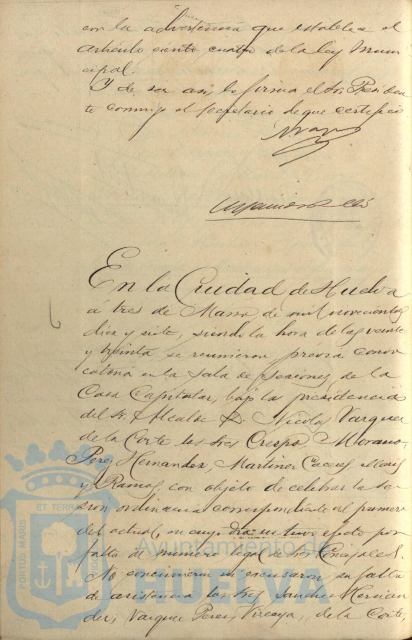 con la advertencia que establece el
artículo ciento cuatro de la ley Muni-
cipal.
Y de ser así, lo firma el Sr. Presiden
te conmigo el secretario de que certifico
En la Ciudad de Huelva
á tres de Marzo de mil novecientos
diez y siete, siendo la hora de las veinte
y treinta se reunieron previa convo
catoria en la Sala de sesiones de la
Casa Capitular, bajo la presidencia
del Sr. Alcalde D. Nicolas Vazquez
de la Corte los Sres Crespo, Morano,
Perez Hernandez, Martinez, Caceres,
y Ramos, con objeto de celebrar la se
sion ordinaria correspondiente al primero
del actual, en cuyo dia no tuvo efecto por
falta de número legal de Sres Concejales.
No concurrieron ni excusaron su falta
de asistencia los Sres Sanchez Hernan
dez, Vazquez Perez, Vizcaya, de la Corte,
PORTUS MARIS ET TERRAE
Ayuntamiento de
HUELVA